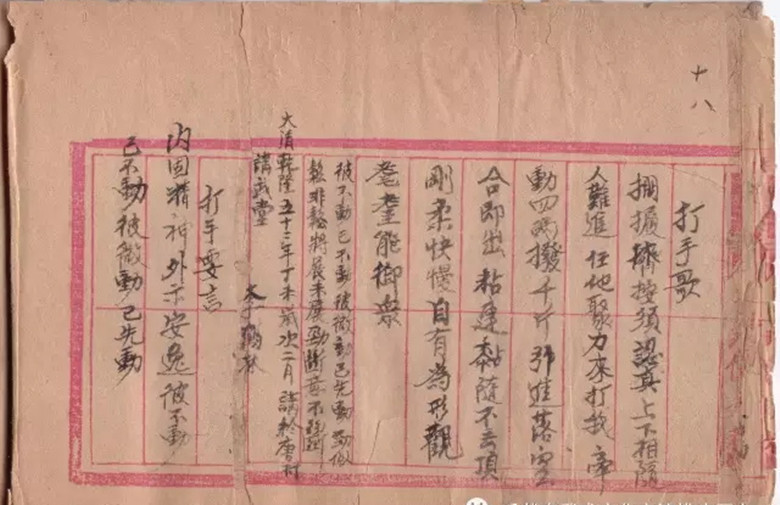 十八
打手歌
掤擠按須認真上下相隨
人難進任他聚力來打我牽
動四兩撥千斤引進落空
合即出粘連黏隨不丟頂
剛柔快慢自有為形觀
耄耋能御眾
彼不動己不動彼微動己先動勁似
鬆非鬆將展未展勁斷意不斷
大清乾隆五十三年丁未歲次二月講於唐村
講武堂 李鶴林
打手要言
內固精神外示安逸彼不動
己不動彼微動己先動